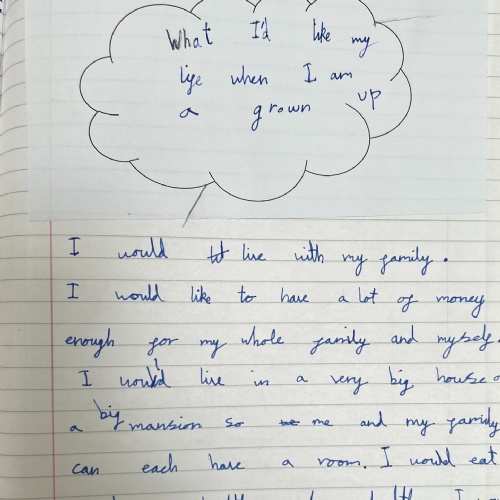 What I'd like my
life when I am
a grown up
I would live with my family.
I would like to have a lot of money
enough for my whole family and myself.
I would live in a very big house
a big mansion so me and my family
can each have a room. I would eat